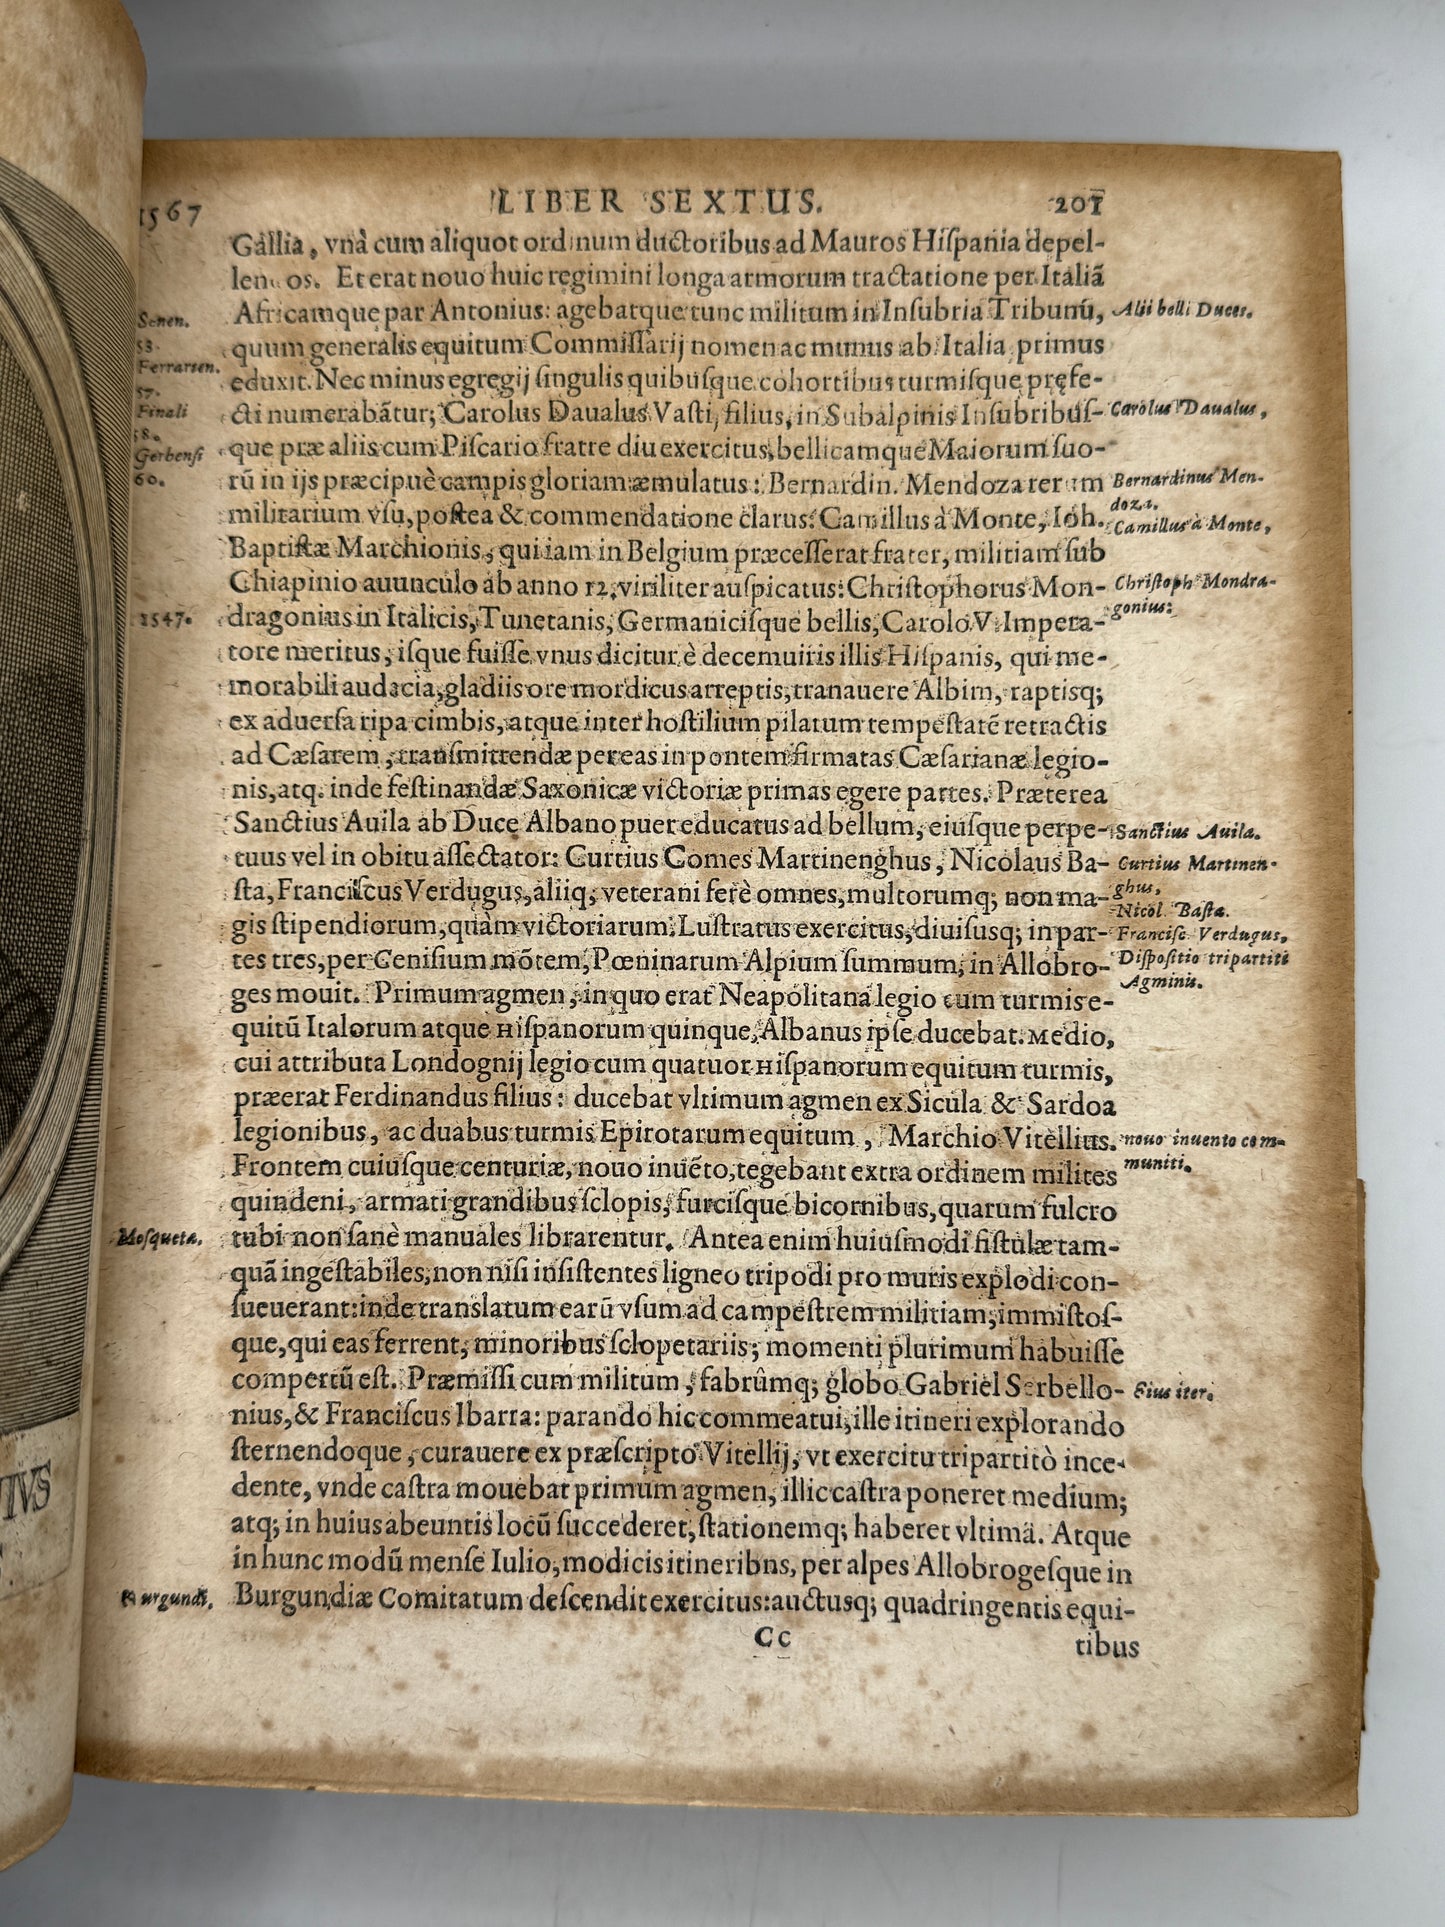 1567 LIBER SEXTUS. 201
Gallia, vnà cum aliquot ordinum ductoribus ad Mauros Hiſpania depel-
len os. Et erat nouo huic regimini longa armorum tractatione per Italiã
Africamque par Antonius: agebatque tunc militum in Inſubria Tribunũ,
quum generalis equitum Commiſſarij nomen ac munus ab Italia primus
eduxit. Nec minus egregij ſingulis quibuſque cohortibus turmiſque pręfe-
cti numerabãtur; Carolus Daualus Vaſti, filius, in Subalpinis Inſubribuſ-
que præ aliis cum Piſcario fratre diu exercitus, bellicamque Maiorum ſuo-
rũ in ijs præcipuè campis gloriam æmulatus: Bernardin. Mendoza rerum
militarium vſu, poſtea & commendatione clarus: Camillus à Monte, Ioh.
Baptiſtæ Marchionis, qui iam in Belgium præceſſerat frater, militiam ſub
Chiapinio auunculo ab anno 12, viriliter auſpicatus: Chriſtophorus Mon-
dragonius in Italicis, Tunetanis, Germaniciſque bellis, Carolo V. Impera-
tore meritus, iſque fuiſſe vnus dicitur è decemuiris illis Hiſpanis, qui me-
morabili audacia, gladiis ore mordicus arreptis, tranauere Albim, raptisq;
ex aduerſa ripa cimbis, atque inter hoſtilium pilatum tempeſtatē retractis
ad Cæſarem, tranſmittendæ per eas in pontem firmatas Cæſarianæ legio-
nis, atq. inde feſtinandæ Saxonicæ victoriæ primas egere partes. Præterea
Sanctius Auila ab Duce Albano puer educatus ad bellum, eiuſque perpe-
tuus vel in obitu aſſectator: Curtius Comes Martinenghus, Nicolaus Ba-
ſta, Franciſcus Verdugus, aliiq; veterani ferè omnes, multorumq; non ma-
gis ſtipendiorum, quàm victoriarum. Luſtratus exercitus, diuiſusq; in par-
tes tres, per Geniſium mõtem, Pœninarum Alpium ſummum, in Allobro-
ges mouit. Primum agmen, in quo erat Neapolitana legio cum turmis e-
quitũ Italorum atque Hiſpanorum quinque, Albanus ipſe ducebat. Medio,
cui attributa Londognij legio cum quatuor Hiſpanorum equitum turmis,
præerat Ferdinandus filius: ducebat vltimum agmen ex Sicula & Sardoa
legionibus, ac duabus turmis Epirotarum equitum, Marchio Vitellius.
Frontem cuiuſque centuriæ, nouo inuẽto, tegebant extra ordinem milites
quindeni, armati grandibus ſclopis, furciſque bicornibus, quarum fulcro
tubi non ſanè manuales librarentur. Antea enim huiuſmodi fiſtulæ tam-
quã ingeſtabiles, non niſi inſiſtentes ligneo tripodi pro muris explodi con-
ſueuerant: inde translatum earũ vſum ad campeſtrem militiam, immiſtoſ-
que, qui eas ferrent, minoribus ſclopetariis; momenti plurimum habuiſſe
compertũ eſt. Præmiſſi cum militum, fabrûmq; globo Gabriel Serbello-
nius, & Franciſcus Ibarra: parando hic commeatui, ille itineri explorando
ſternendoque, curauere ex præſcripto Vitellij, vt exercitu tripartitò ince-
dente, vnde caſtra mouebat primum agmen, illic caſtra poneret medium;
atq; in huius abeuntis locũ ſuccederet, ſtationemq; haberet vltimã. Atque
in hunc modũ menſe Iulio, modicis itineribns, per alpes Allobrogeſque in
Burgundiæ Comitatum deſcendit exercitus: auctusq; quadringentis equi-
Cc tibus
Senen.
53.
Ferrarien.
57.
Finali
58.
Gerbenſi
60.
1547.
Moſqueta.
Burgundi.
Alii belli Duces.
Carolus Daualus,
Bernardinus Men-
doza.
Camillus à Monte,
Chriſtoph Mondra-
gonius:
Sanctius Auila.
Curtius Martinen-
ghus,
Nicol. Baſta.
Franciſc. Verdugus,
Diſpoſitio tripartiti
Agminis.
nouo inuento com-
muniti.
Eius iter.